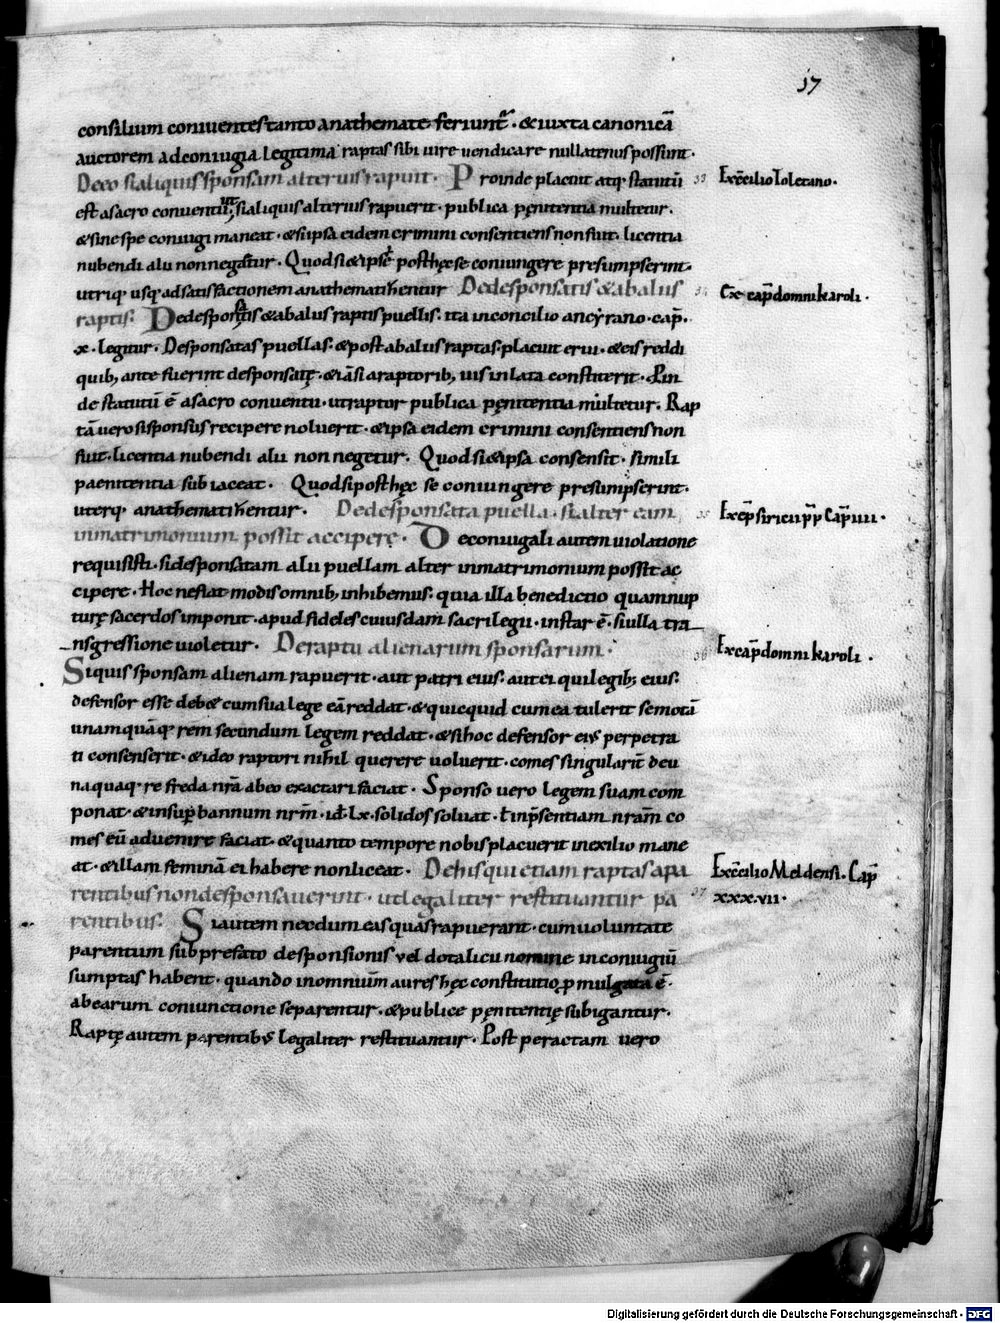 17
consilium coniventes tanto anathemate feriunt͛. & iuxta canonicā
auctorem adeoniugia legitima raptas sibi iure vendicare nullatenus possunt.
De eo si aliquis sponsam alterius rapuit. Proinde placuit atq; statutū
33 Ex c̄cilio Toletano.
est a sacro conventu, ut si aliquis alterius rapuerit. publica pęnitentia multetur.
& sine spe coniugi maneat. & si ipsa eidem crimini consentiens non fuit. licentia
nubendi alii non negetur. Quod si & ipse posthęc se coniungere presumpserint.
utriq; usq; ad satisfactionem anathematizentur De desponsatis & ab aliis
34 Ex cap̄ domni karoli.
raptis. De desponsatis & ab aliis raptis puellis. ita in concilio ancyrano. cap̄.
x. legitur. Desponsatas puellas. & post ab aliis raptas. placuit erui. & eis reddi
quib; ante fuerint desponsatę. & iāsi a raptorib; uis inlata constiterit. Proin
de statutū ē a sacro conventu. ut raptor publica pęnitentia multetur. Rap
ta vero si sponsus recipere noluerit. & ipsa eidem crimini consentiens non
fuit. licentia nubendi alii non negetur. Quod si & ipsa consensit. simili
paenitentia subiaceat. Quod si posthęc se coniungere presumpserint.
uterq; anathematizentur. De desponsata puella. si alter eam
35 Ex ep̄ siricii pp̄ Cap̄ IIII.
in matrimonium possit accipere. De coniugali autem violatione
requisisti. si desponsatam alii puellam alter in matrimonium possit ac
cipere. Hoc ne fiat modis omnib; inhibemus. quia illa benedictio quam nup
turę sacerdos imponit. apud fideles cuiusdam sacrilegii. instar ē. si ulla tra
nsgressione violetur. De raptu alienarum sponsarum.
36 Ex cap̄ domni karoli.
Siquis sponsam alienam rapuerit. aut patri eius. aut ei qui legib; eius.
defensor esse deb& cum sua lege eā reddat. & quicquid cum ea tulerit semotā
unam quāq; rem secundum legem reddat. & si hoc defensor eius perpetra
ti consenserit. & ideo raptori nihil querere voluerit. comes singularit̄ de u
naquaq; re freda nrā ab eo exactari faciat. Sponso vero legem suam com
ponat. & insup̄ bannum nrm̄. id. lx. solidos solvat. t̄ in p̄sentiam nram̄ co
mes eū advenire faciat. & quanto tempore nobis placuerit in exilio mane
at. & illam feminā ei habere non liceat. De his qui etiam raptas a pa
37 Ex c̄cilio Meldensi. Cap̄
rentibus non desponsaverint. ut legaliter restituantur pa
xxx.vii.
rentibus. Si autem necdum eas quas rapuerant. cum voluntate
parentum sub prefato desponsionis vel dotalicii nomine in coniugiū
sumptas habent. quando in omnium aures hęc constitutio p̄mulgata ē.
ab earum coniunctione separentur. & publice pęnitentię subigantur.
Raptę autem parentibus legaliter restituantur. Post peractam vero
Digitalisierung gefördert durch die Deutsche Forschungsgemeinschaft - DFG